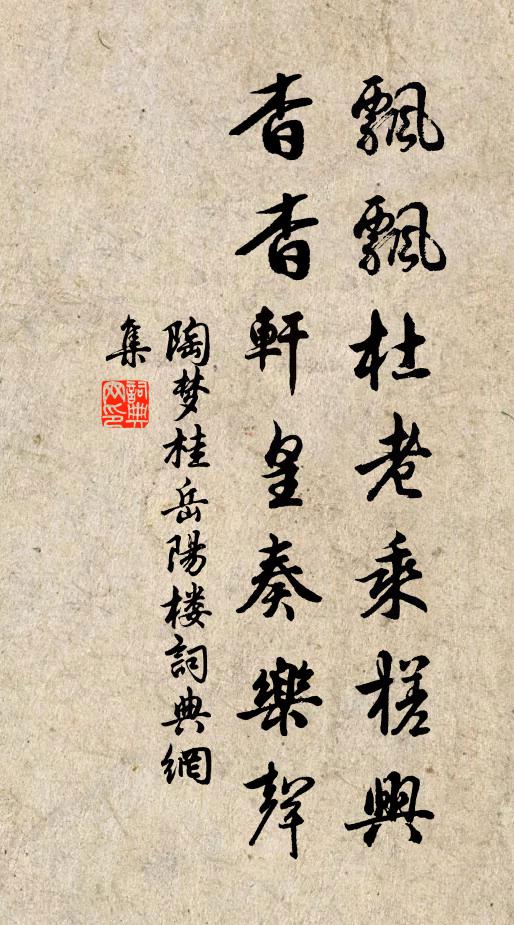 飄飄杜老乘槎興
杳杳軒皇奏樂聲
陶梦桂岳陽楼詞典網
集
詞典網印